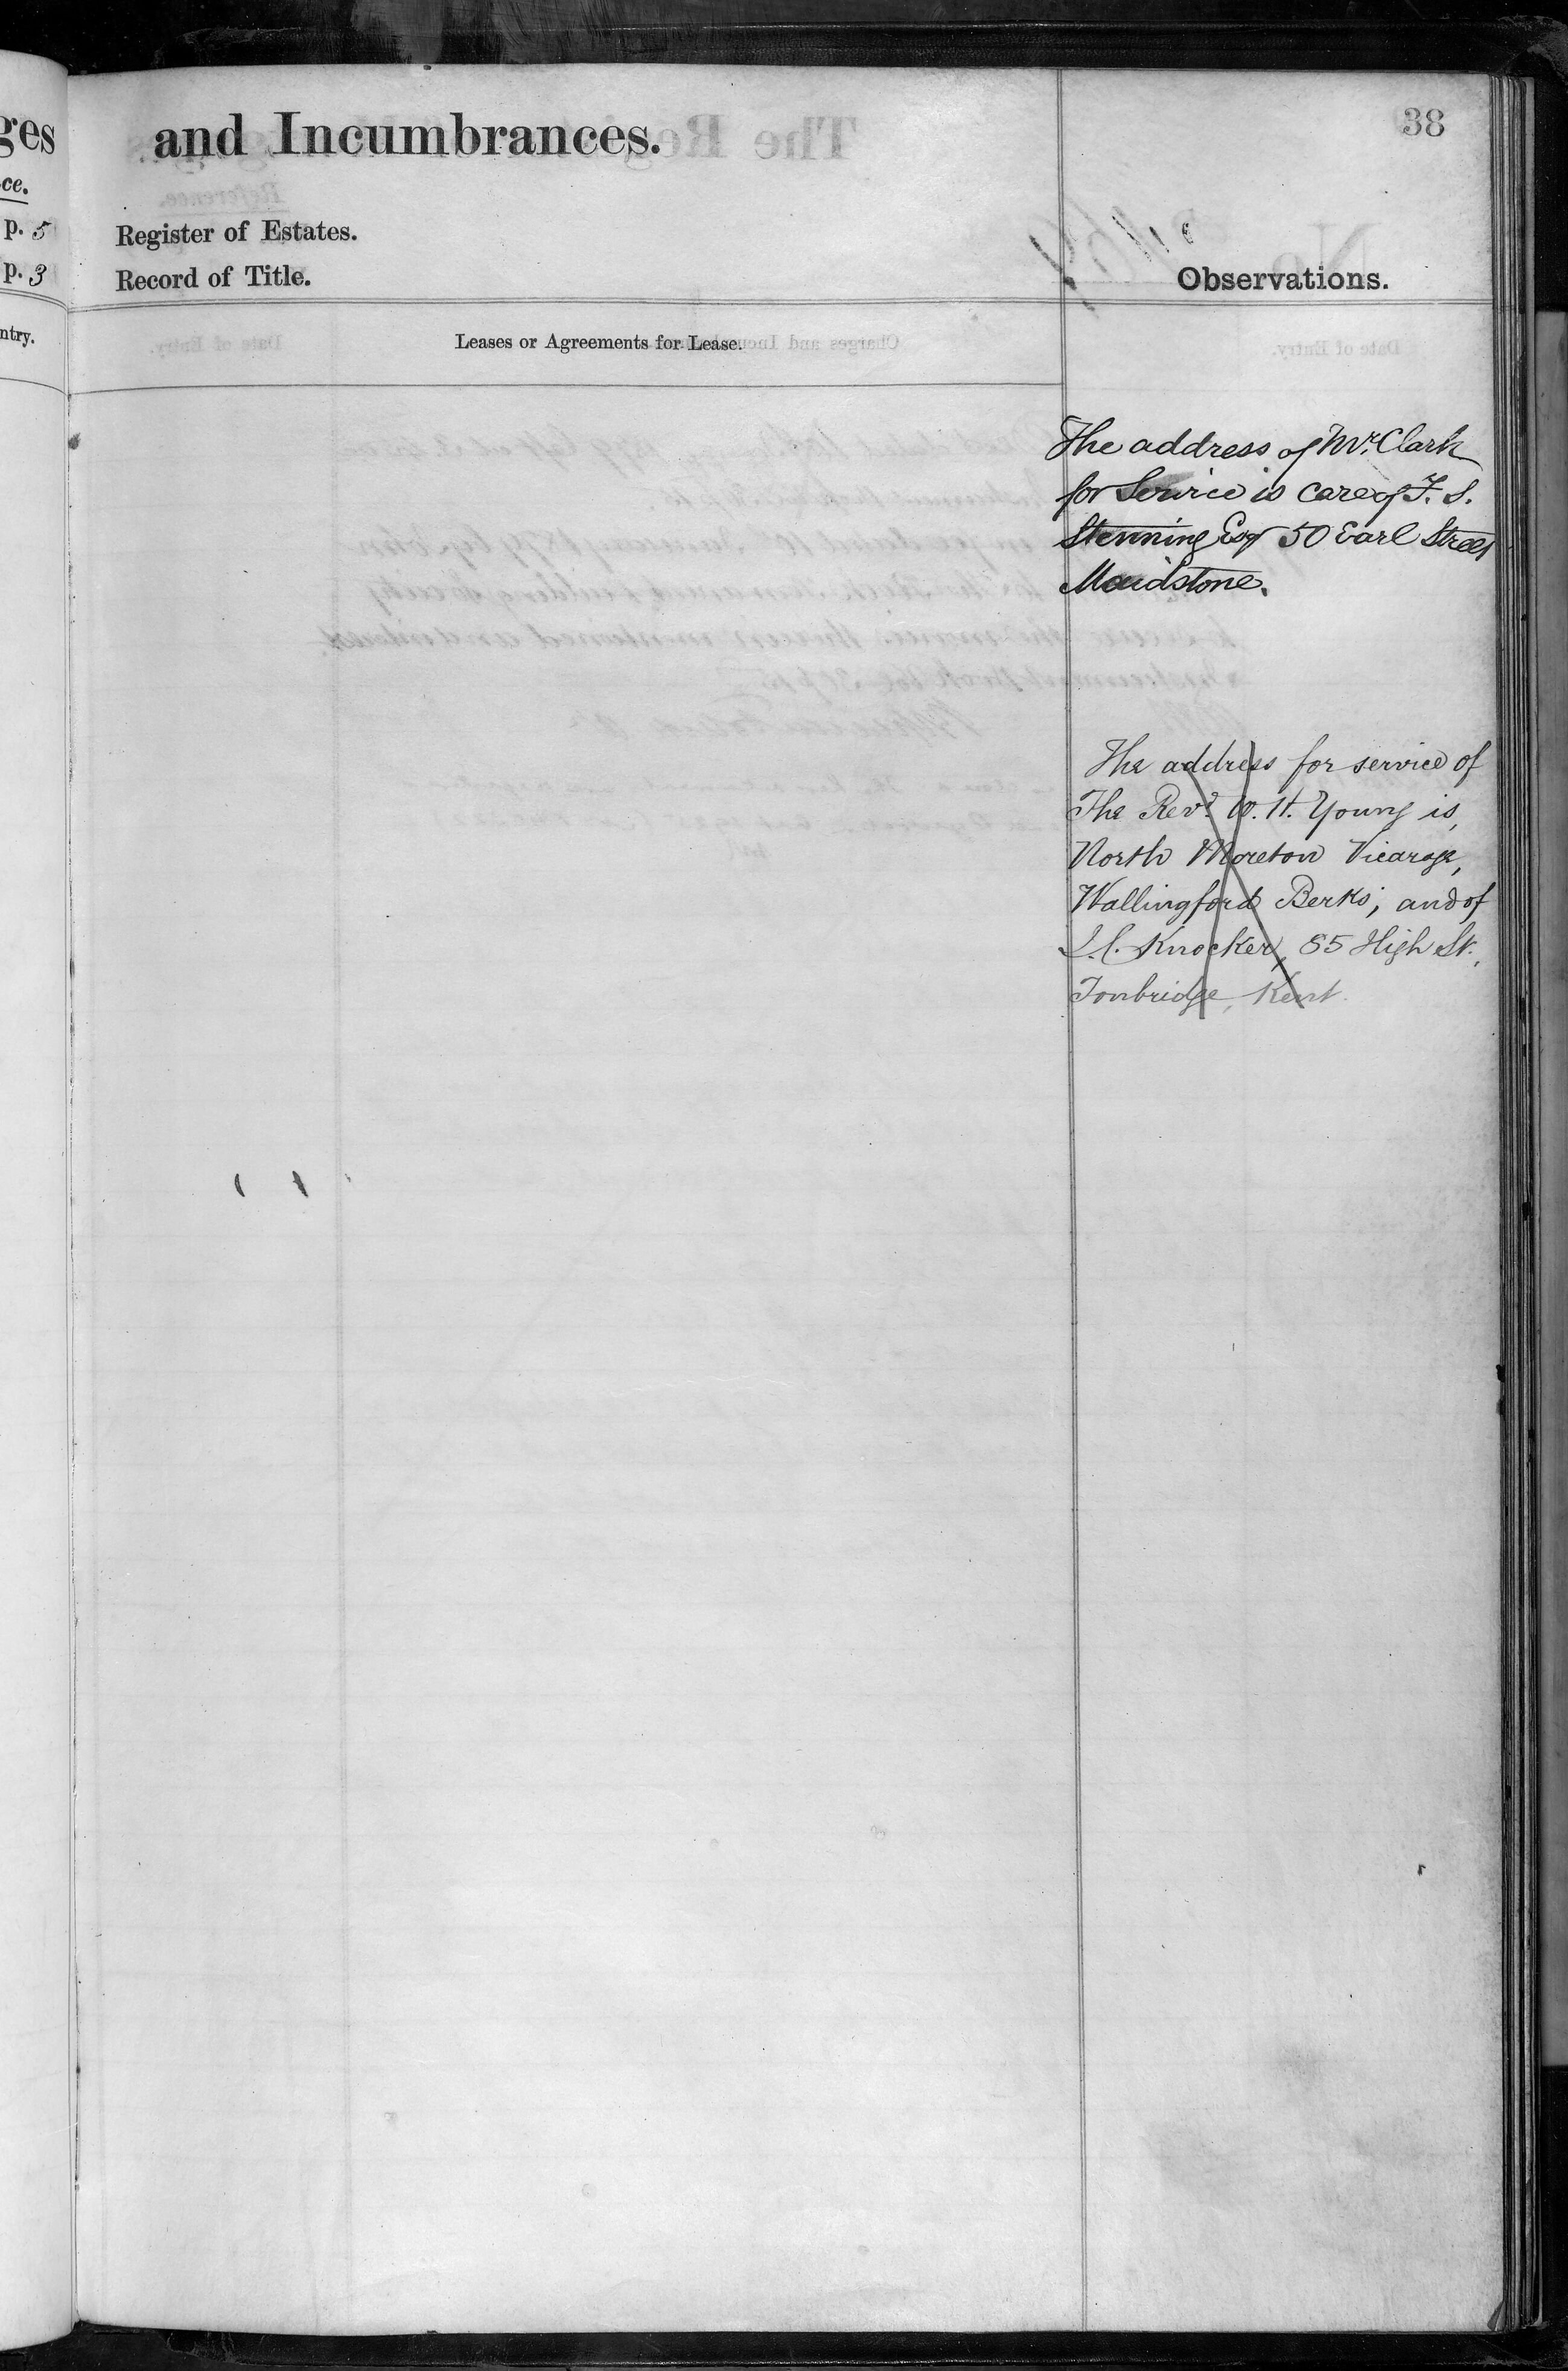 ges
ce.
p. 5
p. 3
ntry.
and Incumbrances.
38
Register of Estates.
Record of Title.
Observations.
Leases or Agreements for Lease.
The address of Mr. Clark
for Service is care of F. S.
Stenning Esq 50 Earl Street
Maidstone.
The address for service of
The Revd. W. H. Young is,
North Moreton Vicarage,
Wallingford Berks; and of
Knocker, 85 High St.,
Tonbridge, Kent.